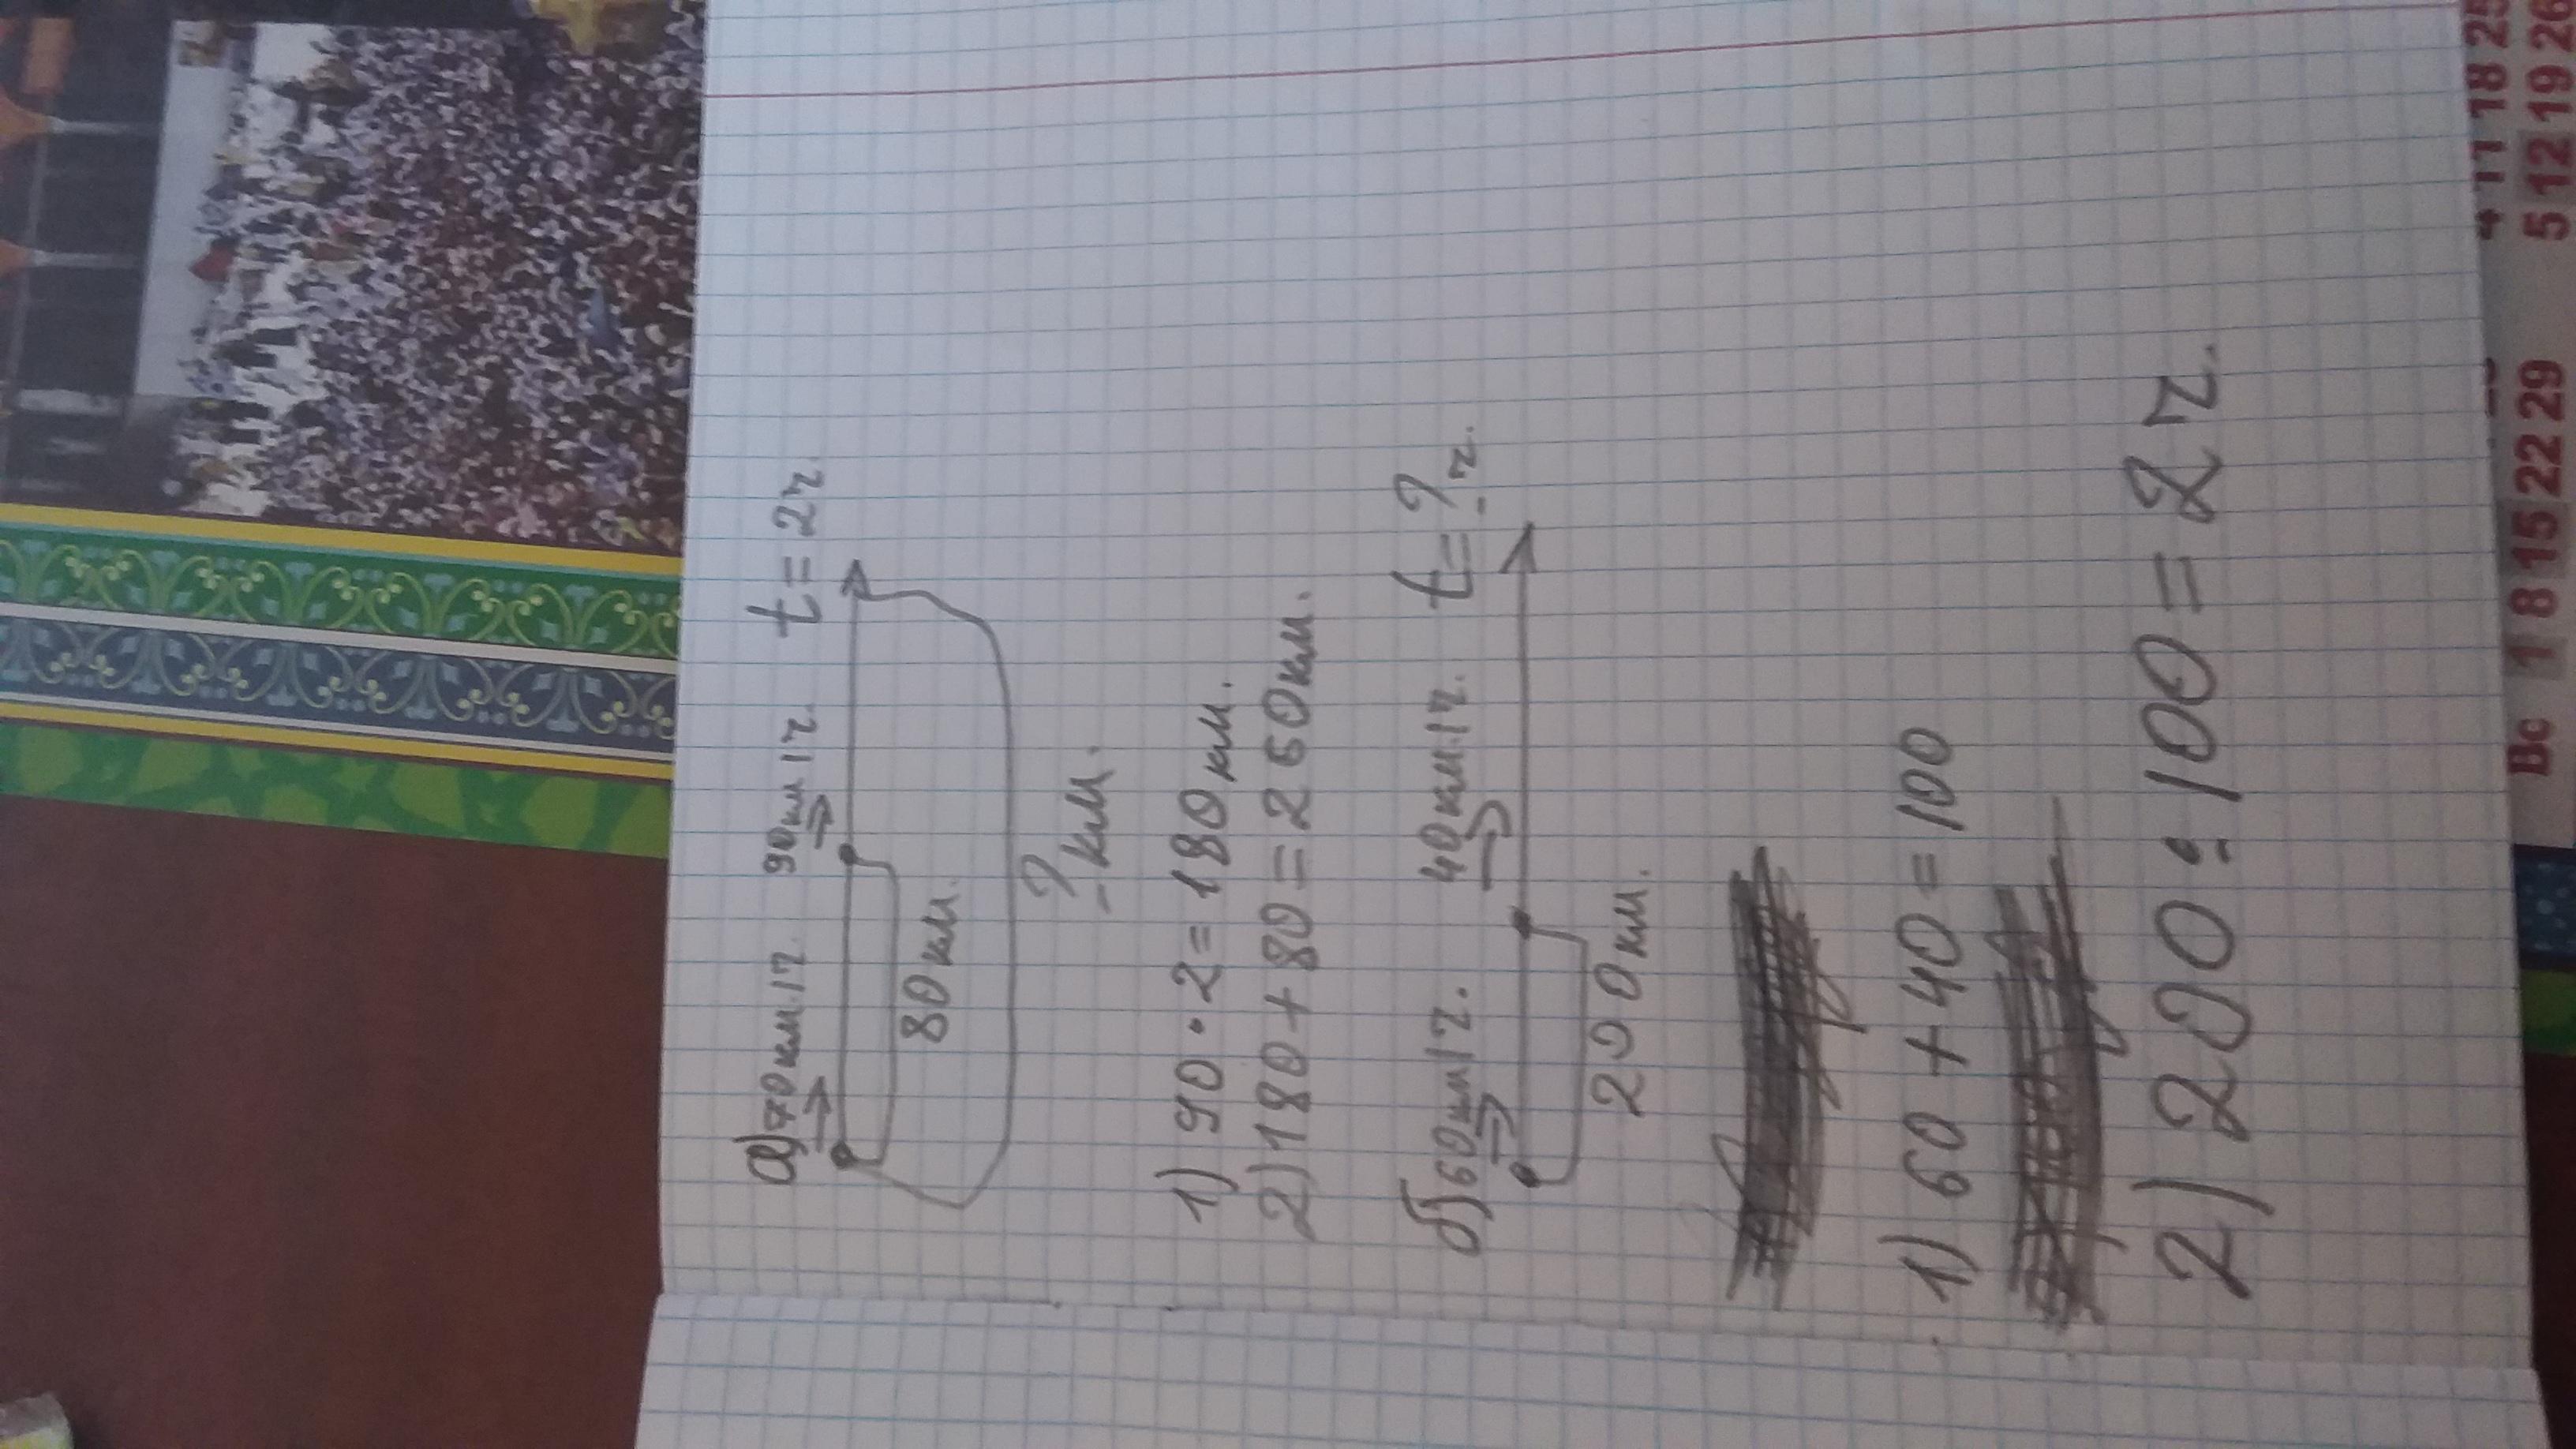 а) 70 км/ч. 90 км/ч. t = 2ч.
80 км.
? км.
1) 90 · 2 = 180 км.
2) 180 + 80 = 260 км.
б) 60 км/ч. 40 км/ч. t = ? ч.
200 км.
1) 60 + 40 = 100
2) 200 : 100 = 2 ч.
4 11 18 25
5 12 19 26
Вс 1 8 15 22 29